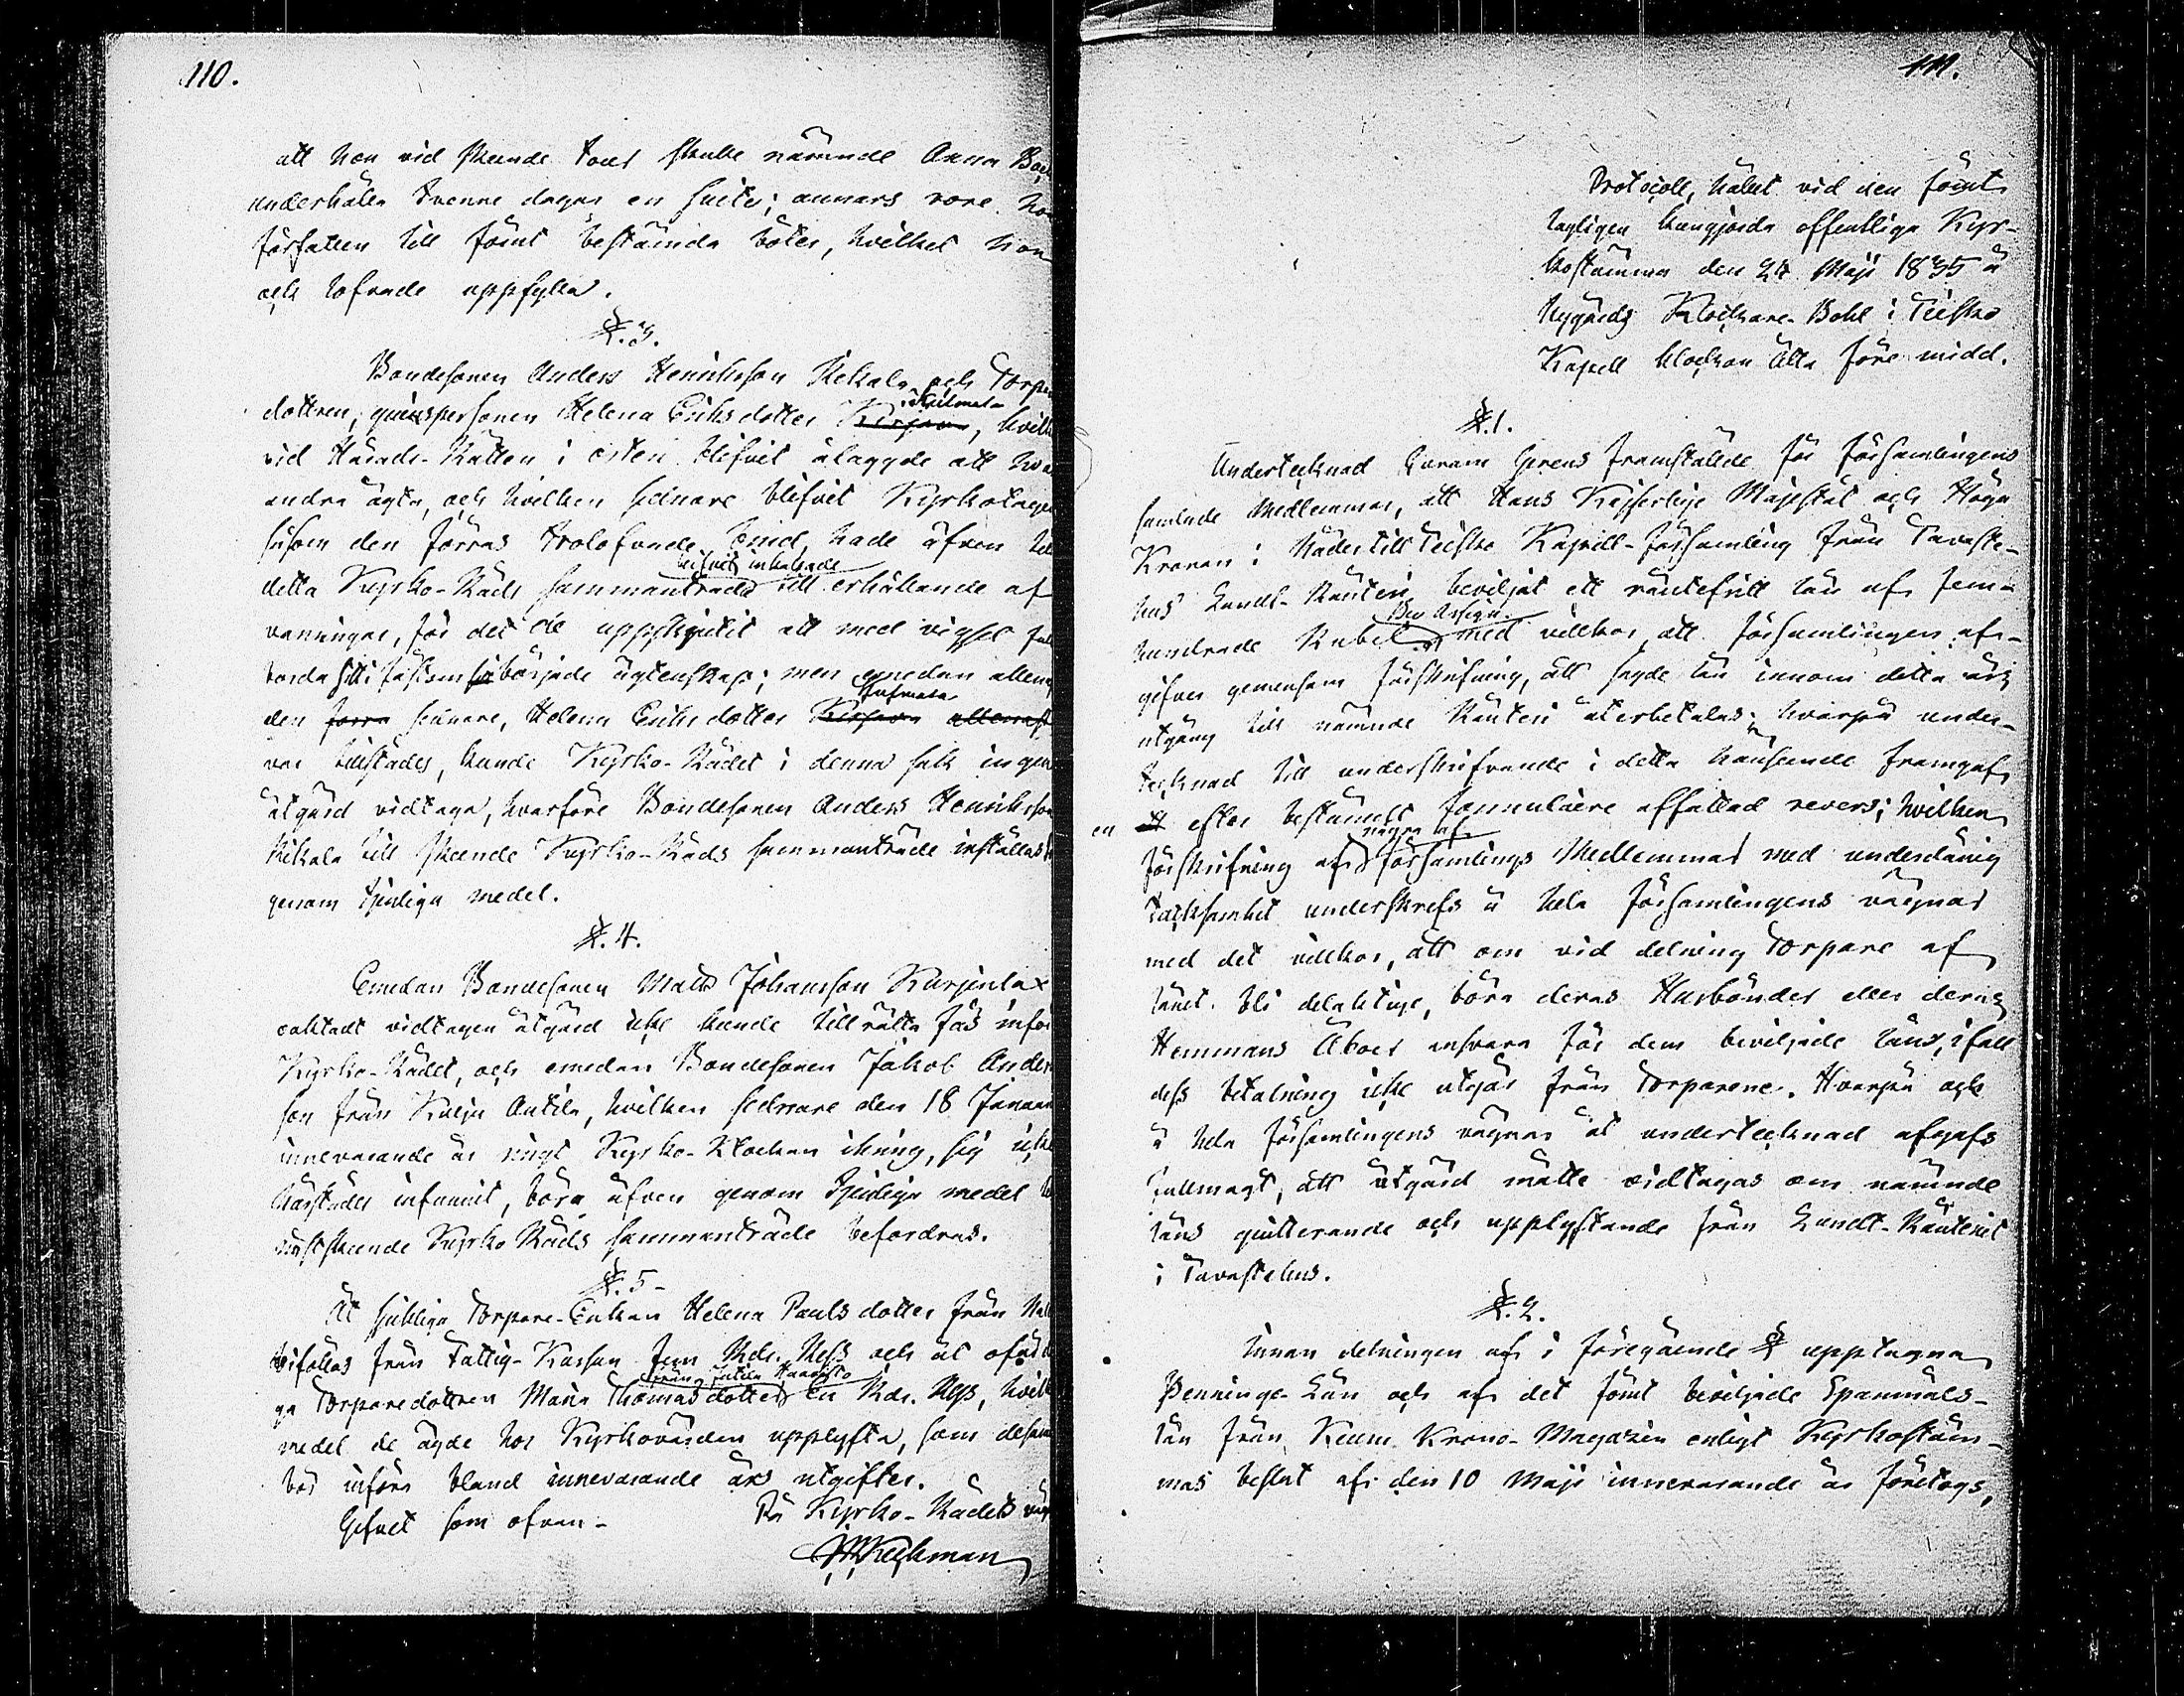 110.
att hon vid skeende trot skulle nämnde Anna
underhålla tvenne dagar en hvete; annars vore
förfallen till förut bestämda böter, hvilket hon
och lofvade uppfylla.
§. 3.
Bondesonen Anders Henriksson Kekala och Torpare
dottren, qvinspersonen Helena Eriksdotter Kirjava, hvilka
vid Härads-Rätten i östen blifvit ålagde att hvar
andra ägta, och hvilken sednare blifvit Kyrkotagen
såsom den förras trolofvade qvind, hade äfven till
blifvit inkallade
detta Kyrko-Råds sammanträde till erhållande af
varningar, för det de uppskjutit att med vigsel full
borda sitt i började ägtenskap; men emedan allenast
den förra sednare, Helena Eriksdotter Kirjava allenast
var tillstädes, kunde Kyrko-Rådet i denna sak ingen
åtgärd vidtaga, hvarföre Bondesonen Anders Henriksson
Kekala till skeende Kyrko-Råds sammanträde inställas
genom tjenliga medel.
§. 4.
Emedan Bondesonen Matts Johansson Kurjenlax
oaktadt vidtagen åtgärd icke kunde tillrätta fås inför
Kyrko-Rådet, och emedan Bondesonen Jakob Anders
son från Kulju Antila, hvilken sednare den 18 Januari
innevarande år ringt Kyrko-Klockan ikring, sig icke
härstädes infunnit, böra äfven genom tjenliga medel
nästskeende Kyrko Råds sammanträde befordras.
§. 5.
Åt sjukliga Torpare-Enkan Helena Pauls dotter från
bifölles från Fattig-Kassan fem Rdr. Rgs och åt
från Haavisto
ga Torparedottren Maria Thomas dotter En Rdr. Rgs, hvilka
medel de ägde hos Kyrkovärden upplyfta, som desamma
bör införa bland innevarande års utgifter.
Gifvet som ofvan. På Kyrko-Rådets väg
Keckman
111.
Protocoll, hållet vid den förut
lagligen kungjorda offentliga Kyr-
kostämma den 24 Maji 1835 å
Nygård Klockare-Bohl i Teisko
Kapell klockan Åtta före midd.
§. 1.
Undertecknad Genom Gerens framstälde för Församlingens
samlade Medlemmar, att Hans Kejserliga Majestät och Höga
Kronan i Nåder till Teisko Kapell-församling från Tavaste-
hus Landt-Ränteri beviljat ett räntefritt lån af fem-
Bco Assign.
hundrade Rubel med villkor att församlingen af-
gifver gemensam förskrifning, att sagde lån innom detta års
utgång till nämnde Ränteri återbetalas; hvarpå under-
tecknad till underskrifvande i detta hänseende framgaf
en efter bestämdt formulaire affattad revers; hvilken
några af
förskrifning af församlings Medlemmar med underdånig
tacksamhet underskrefs å hela församlingens vägnar
med det villkor, att om vid delning Torpare af
lånet bli delaktige, böra deras Husbönder eller deras
Hemmans Åboer ansvara för dem beviljade låns, ifall
dess betalning icke utgår från Torparene. Hvarpå och
å hela församlingens vägnar åt undertecknad afgafs
fullmagt, att åtgärd måtte vidtagas om nämnde
låns quitterande och upplyftande från Landt-Ränteriet
i Tavastehus.
§. 2.
Innan delningen af i föregående § upptagna
Penninge-Lån och af det förut beviljade Spanmåls-
lån från Keum. Krono-Magazin enligt Kyrkostäm-
mas beslut af den 10 Maji innevarande år företogs,